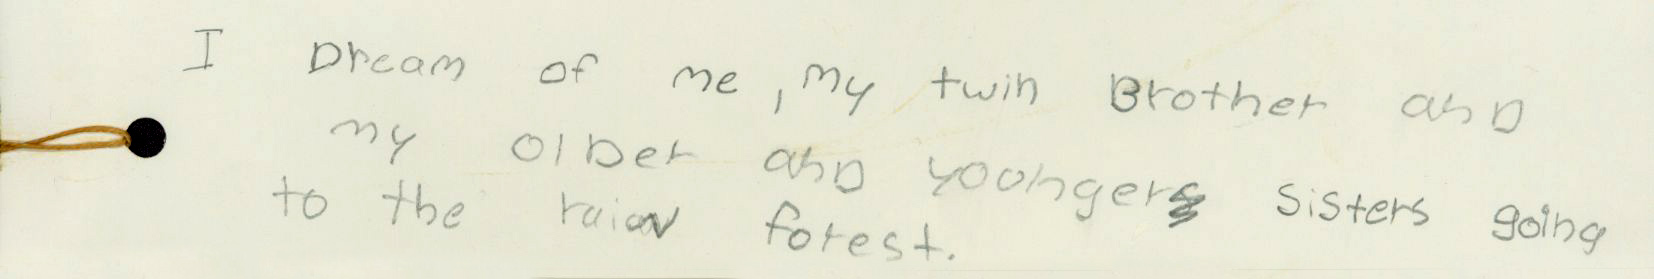 I Dream of me, my twin Brother anD
my olDer anD yoonger sisters going
to the rain forest.